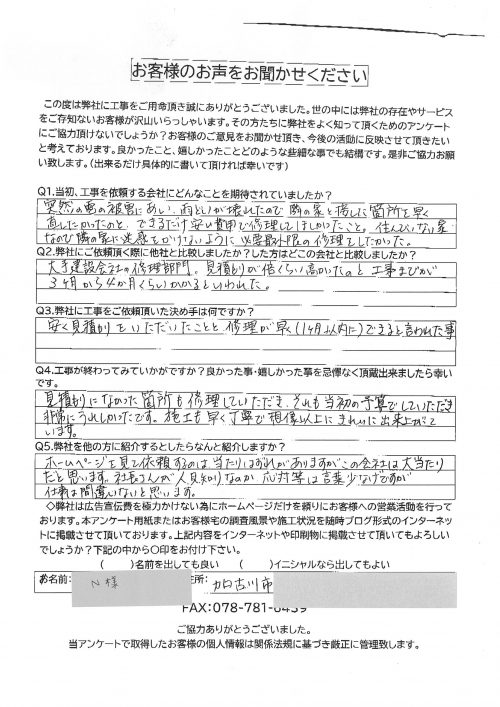 お客様のお声をお聞かせください
この度は弊社に工事をご用命頂き誠にありがとうございました。世の中には弊社の存在やサービス
をご存知ないお客様が沢山いらっしゃいます。その方たちに弊社をよく知って頂くためのアンケート
にご協力頂けないでしょうか?お客様のご意見をお聞かせ頂き、今後の活動に反映させて頂きたい
と考えております。良かったこと、嬉しかったことどのような些細な事でも結構です。是非ご協力お願
い致します。（出来るだけ具体的に書いて頂ければ幸いです）
Q1.当初、工事を依頼する会社にどんなことを期待されていましたか？
突然の雪の被害にあい、雨といが壊れたので隣の家と接した箇所を早く
直したかったのと、できるだけ安い費用で修理してほしかったこと。住んでいない家
なので隣の家に迷惑をかけないように必要最小限の修理をしたかった。
Q2.弊社にご依頼頂く際に他社と比較しましたか？した方はどこの会社と比較しましたか？
大手建設会社の修理部門。見積りが倍くらい高かったのと工事までが
3ヶ月から4か月くらいかかるといわれた。
Q3.弊社に工事をご依頼頂いた決め手は何ですか？
安く見積りをいただいたことと、修理が早く(1ヶ月以内に)できると言われた事
Q4.工事が終わってみていかがですか？良かった事・嬉しかった事を忌憚なく頂蔵出来ましたら幸い
です。
見積りになかった箇所も修理していただき、それも当初の予算でしていただき
非常にうれしかったです。施工も早く丁寧で想像以上にきれいに出来上がって
います。
Q5.弊社を他の方に紹介するとしたらなんと紹介しますか？
ホームページを見て依頼するのは当たりはずれがありますがこの会社は大当たり
だと思います。社長さんが人見知りなのか、応対等は言葉少なげですが
仕事は間違いないと思います。
◇弊社は広告宣伝費を極力かけない為にホームページだけを頼りにお客様への営業活動を行って
おります。本アンケート用紙またはお客様宅の調査風景や施工状況を随時ブログ形式のインターネッ
トに掲載させて頂いております。上記内容をインターネットや印刷物に掲載させて頂いてもよろしい
でしょうか？下記の中から〇印をお付け下さい。
（　　）名前を出しても良い　　（　　）イニシャルなら出してもよい
お名前： N様 住所： 加古川市
FAX:078-781-6439
ご協力ありがとうございました。
当アンケートで取得したお客様の個人情報は関係法規に基づき厳正に管理致します。